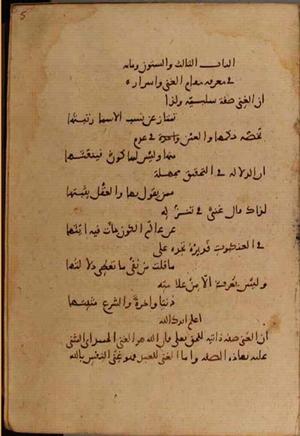 الباب الثالث والستون ومايه
في معرفه مقام الغنى واسراره
ان الغنى صفة سلبيه ولذا
تمتاز عن نسب الاسما رتبتها
تخصه حكمها والعين واحدة في عزم
منها وليس لها كون فينعتها
ان الدلاله في التحقيق مجهلة
ممن يقول بها والعقل يثبتها
لذاك قال غنى في تنزله
عن عالم الكون جات فيه ايتها
في العنكبوت فدبره تجده على
ما قلت من نفي ما تعطي دلالتها
وليس يعرفه الا من علامته
دنيا واخرة والشرع مثبتها
اعلم ايدك الله
ان الغنى صفة ذاتيه للحق تعلى فان الله هو الغنى الحميد اي المثنى
عليه بهذه الصفه واما الغنى للعبد فهو غنى النفس بالله